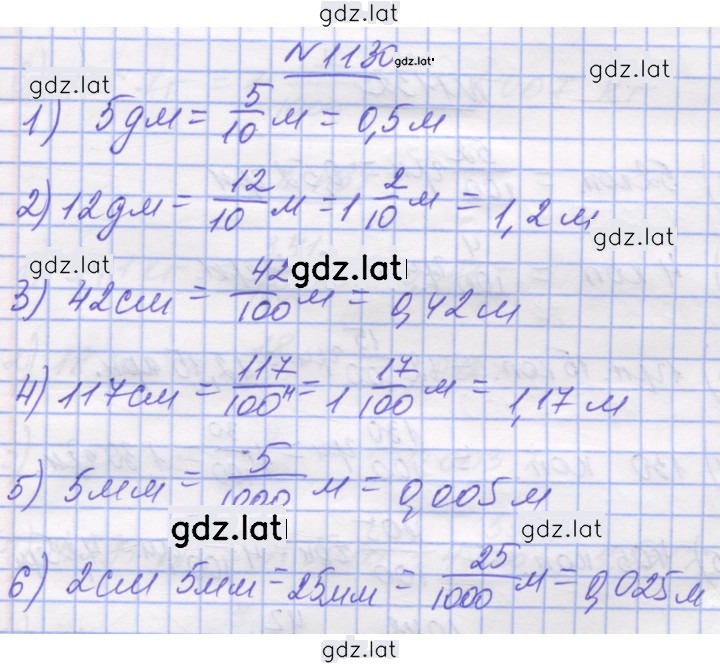 gdz.latı
N 1130 gdz.lat
gdz.lat gdz.lat
1) 5дм = 5/10 м = 0,5 м
2) 12дм = 12/10 м = 1 2/10 м = 1,2 м
gdz.lat gdz.lat gdz.lat
3) 42см = 42/100 м = 0,42 м
4) 117см = 117/100 м = 1 17/100 м = 1,17 м
5) 5мм = 5/1000 м = 0,005 м
gdz.lat gdz.lat
6) 2см 5мм = 25мм = 25/1000 м = 0,025 м
gdz.lat